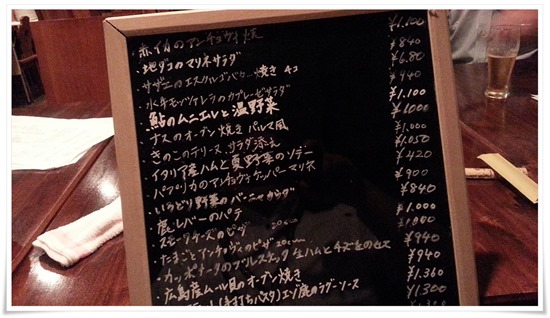 ・赤イカのアンチョヴィ焼 ¥1,100
・地ダコのマリネサラダ ¥840
・サザエのエスカルゴバター焼き 4コ ¥680
・水牛モッツァレラのカプレーゼサラダ ¥940
・鮎のムニエレと温野菜 ¥1,100
・ナスのオーブン焼き パルマ風 ¥1000
・きのこのテリーヌ サラダ添え ¥1,000
・イタリア産ハムと夏野菜のソテー ¥1,050
・パプリカのアンチョヴィケッパーマリネ ¥420
・いろどり野菜のバーニャカウダ ¥900
・鹿レバーのパテ ¥840
・スモークチーズのピザ 20cm ¥1,000
・たまごとアンチョヴィのピザ 20cm
・カッポナータのブルスケッタ 生ハムとチーズをのせて ¥940
・広島産ムール貝のオーブン焼き ¥940
(手打ちパスタ)エゾ鹿のラグーソース ¥1,360
¥1,300